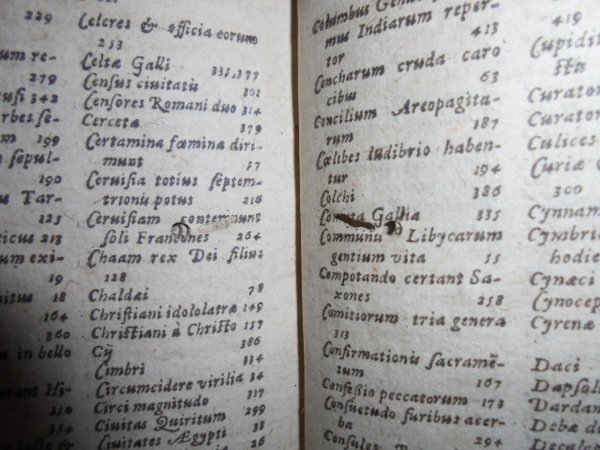 229
um re-
279
usi 342
rbes se-
199
sepul-
190
u Tar-
125
ticus 213
um exi-
19
pitus 18
164
360
in bello
erant Hi-
350
Celeres & officia eorum
253
Celtæ Galli 335,377
Census ciuitatū 202
Censores Romani duo 314
Cerceta 379
Certamina fœmina diri-
munt 57
Ceruisia totius septem-
trionū potus 216
Ceruisiam contemnunt
soli Francones 264
Chaam rex Dei filius
128
Chaldæi 78
Christiani idololatræ 149
Christiani à Christo 157
Cÿ 386
Cimbri 334
Circumcidere virilia 34
Circi magnitudo 207
Ciuitas Quiritum 299
Ciuitates Ægypti 26
Columbus
mus Indiarum reper-
tor 413
Concharum cruda caro
cibus 63
Concilium Areopagita-
rum 187
Cœlibes ludibrio haben-
tur 194
Colchi 386
Comata Gallia 335
Communū Libycarum
gentium vita 15
Computando certant Sa-
xones 258
Comitiorum tria genera
313
Confirmationis sacramē-
tum 167
Confessio peccatorum 173
Consuetudo furibus acer-
ba 294
Consules
419
Cupidit
Curator
Curator
Culices
Curiæ
300
Cynnam
Cymbric
hodie
Cynæci
Cynocep
Cyrenæ
Daci
Dapsoli
Dardan
Debæ di
Decan